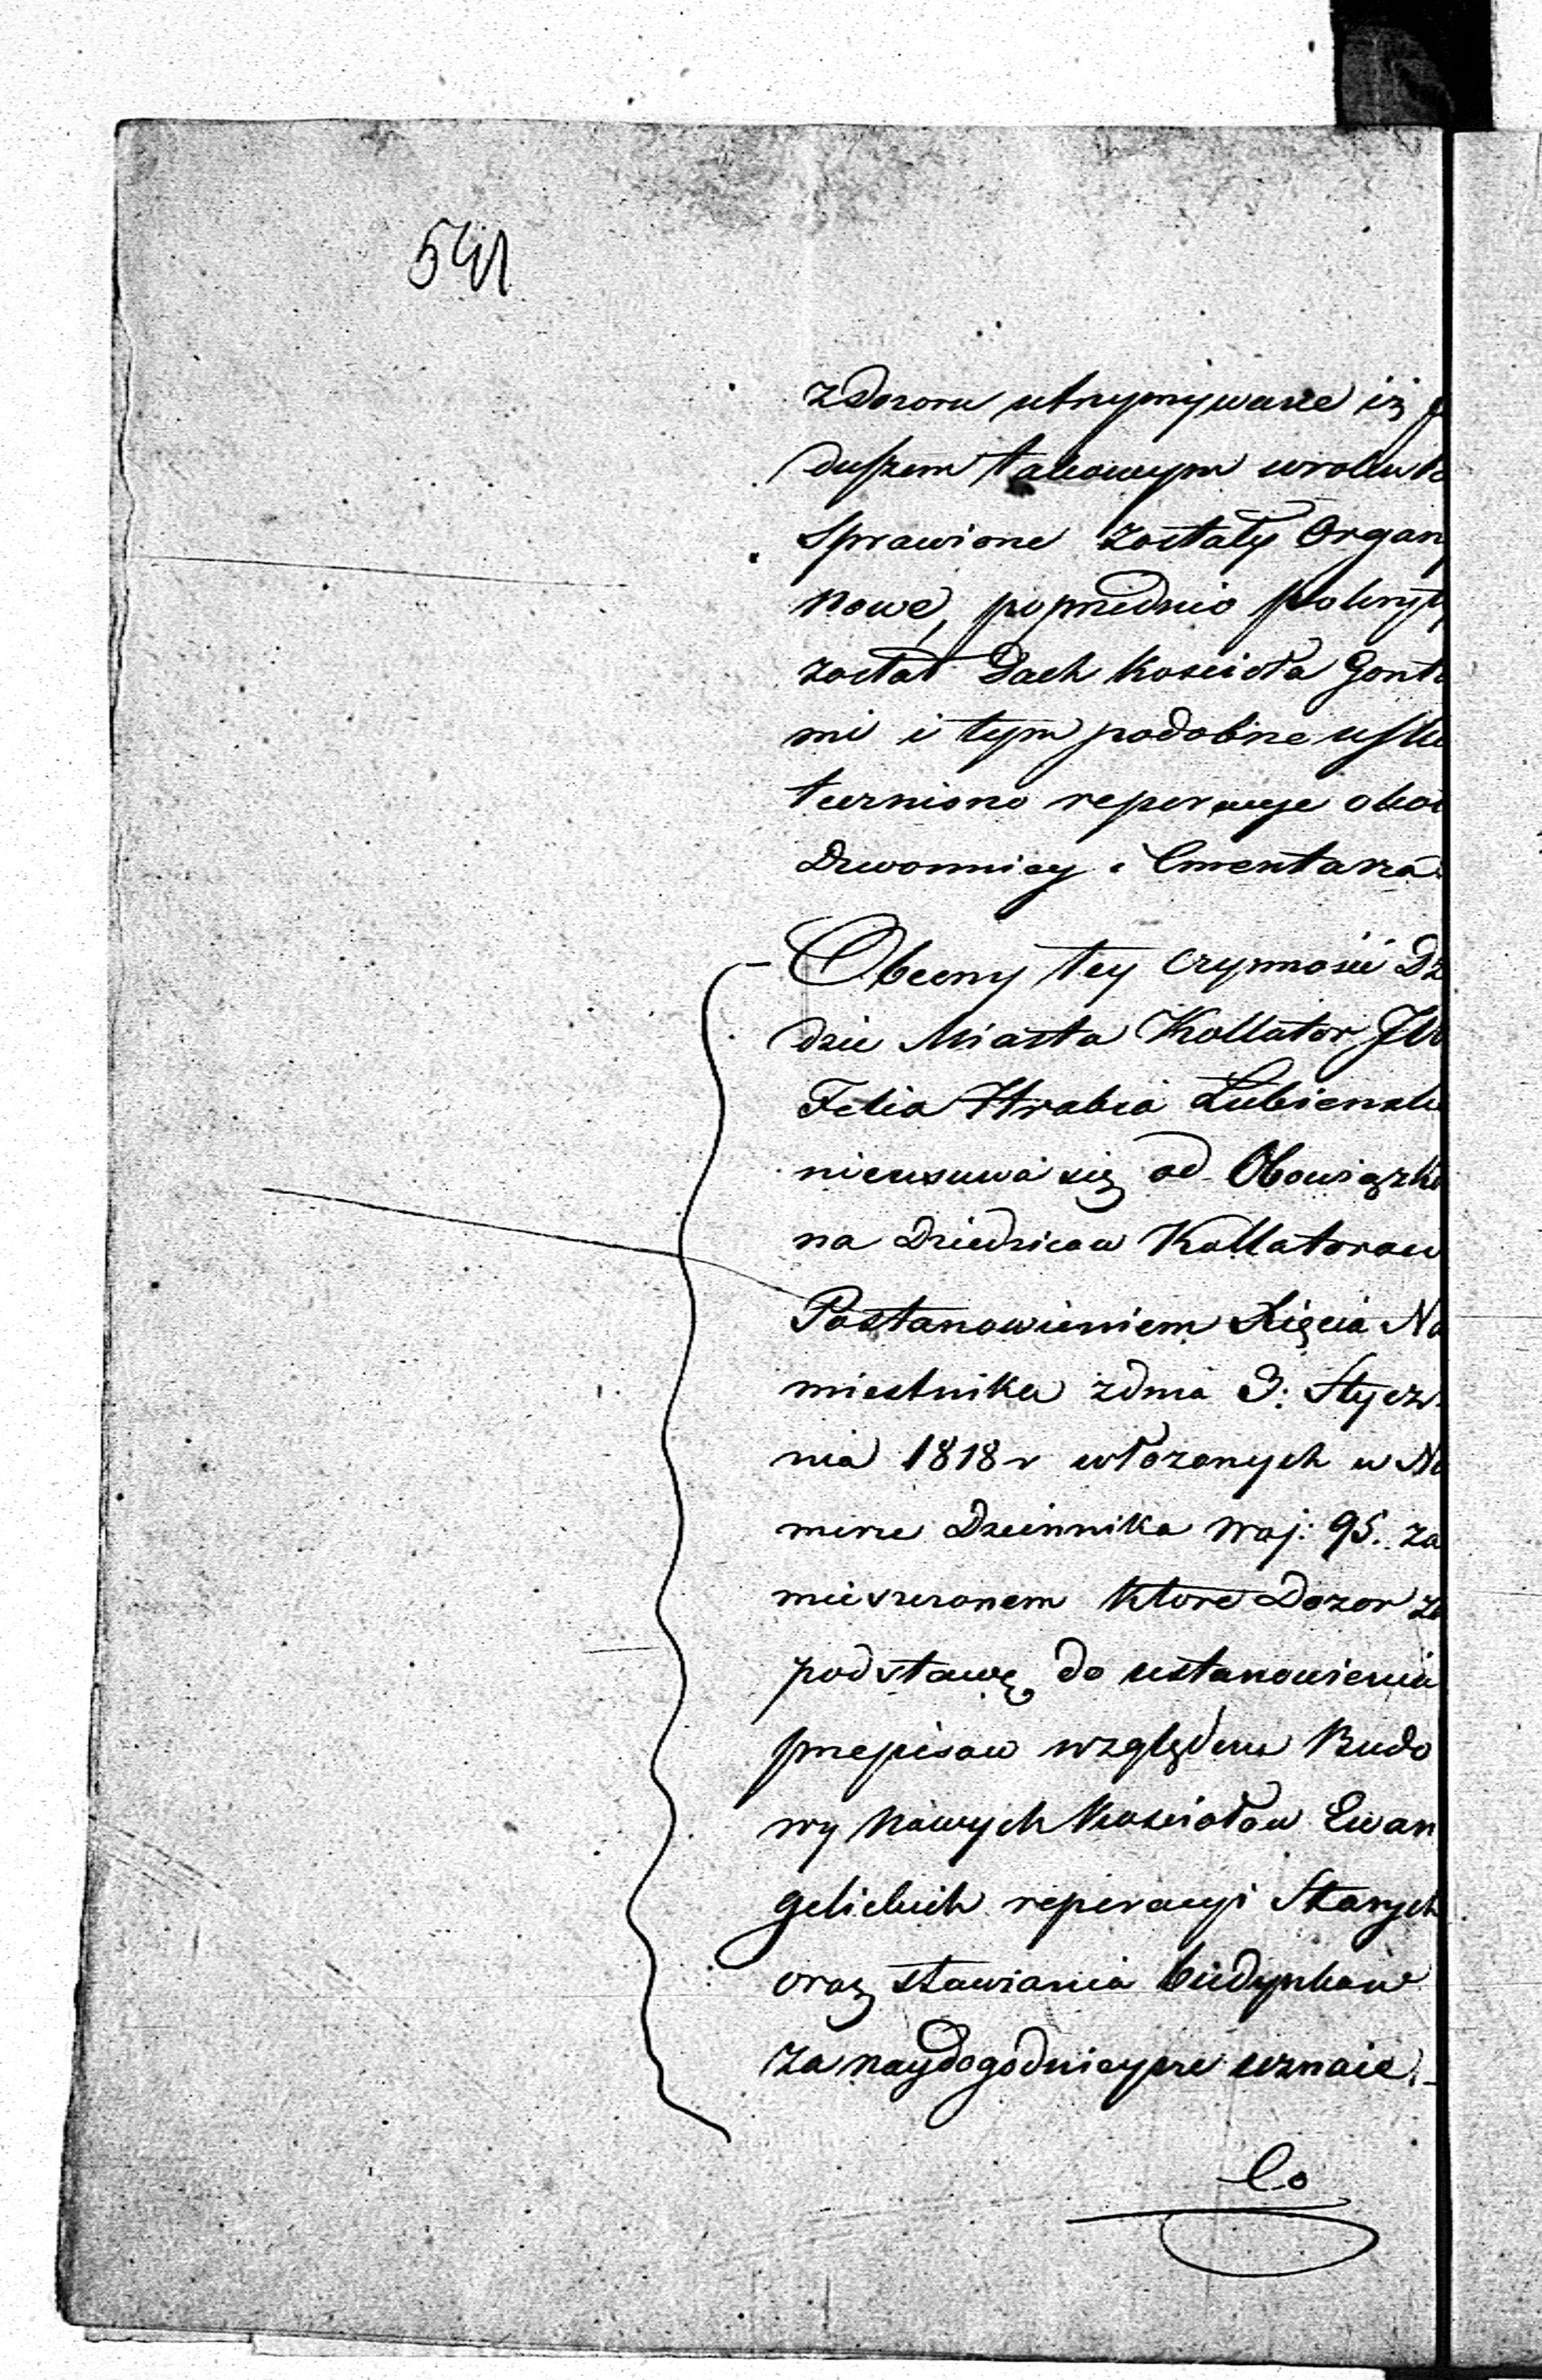 541
z Dozoru utrzymywane iż
duszem takowym w roku
Sprawione zostały Organy
nowe, poprzednio pokryty
został Dach Kościoła Gont
mi i tym podobne usku
teczniono reperacye oko
Dzwonnicy i Cmentarza.
Obecny tey czynności Dz
dzic Miasta Kollator JW
Felix Hrabia Łubiensk
nieusuwa się od Obowiązk
na Dziedzicow Kollatorow
Postanowieniem Xięcia Na
miestnika z dnia 3. Stycz
nia 1818 r włożonych w Nu
merze Dziennika Woj: 95. za
mieszczonem ktore Dozor za
podstawę do ustanowienia
przepisow względem Budo
wy Nowych Kosciołow Ewan
gelickich reperacyi Starych
oraz stawiania budynkow
za naydogodnieysze uznaie.
Co